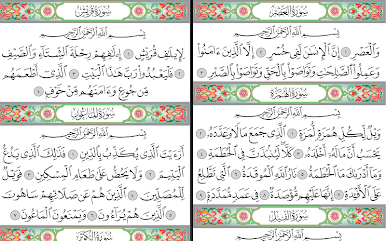 سُورَةُ الْعَصْرِ
بِسْمِ اللَّهِ الرَّحْمَٰنِ الرَّحِيمِ
وَٱلْعَصْرِ ١ إِنَّ ٱلْإِنسَٰنَ لَفِى خُسْرٍ ٢ إِلَّا ٱلَّذِينَ ءَامَنُوا۟
وَعَمِلُوا۟ ٱلصَّٰلِحَٰتِ وَتَوَاصَوْا۟ بِٱلْحَقِّ وَتَوَاصَوْا۟ بِٱلصَّبْرِ ٣
سُورَةُ الْهُمَزَةِ
بِسْمِ اللَّهِ الرَّحْمَٰنِ الرَّحِيمِ
وَيْلٌ لِّكُلِّ هُمَزَةٍ لُّمَزَةٍ ١ ٱلَّذِى جَمَعَ مَالًا وَعَدَّدَهُۥ ٢
يَحْسَبُ أَنَّ مَالَهُۥٓ أَخْلَدَهُۥ ٣ كَلَّا لَيُنۢبَذَنَّ فِى ٱلْحُطَمَةِ ٤
وَمَآ أَدْرَىٰكَ مَا ٱلْحُطَمَةُ ٥ نَارُ ٱللَّهِ ٱلْمُوقَدَةُ ٦ ٱلَّتِى تَطَّلِعُ
عَلَى ٱلْأَفْـِٔدَةِ ٧ إِنَّهَا عَلَيْهِم مُّؤْصَدَةٌ ٨ فِى عَمَدٍ مُّمَدَّدَةٍ ٩
سُورَةُ الْفِيلِ
بِسْمِ اللَّهِ الرَّحْمَٰنِ الرَّحِيمِ
سُورَةُ قُرَيْشٍ
بِسْمِ اللَّهِ الرَّحْمَٰنِ الرَّحِيمِ
لِإِيلَٰفِ قُرَيْشٍ ١ إِۦلَٰفِهِمْ رِحْلَةَ ٱلشِّتَآءِ وَٱلصَّيْفِ
٢ فَلْيَعْبُدُوا۟ رَبَّ هَٰذَا ٱلْبَيْتِ ٣ ٱلَّذِىٓ أَطْعَمَهُم
مِّن جُوعٍ وَءَامَنَهُم مِّنْ خَوْفٍۭ ٤
سُورَةُ الْمَاعُونِ
بِسْمِ اللَّهِ الرَّحْمَٰنِ الرَّحِيمِ
أَرَءَيْتَ ٱلَّذِى يُكَذِّبُ بِٱلدِّينِ ١ فَذَٰلِكَ ٱلَّذِى يَدُعُّ
ٱلْيَتِيمَ ٢ وَلَا يَحُضُّ عَلَىٰ طَعَامِ ٱلْمِسْكِينِ ٣ فَوَيْلٌ
لِّلْمُصَلِّينَ ٤ ٱلَّذِينَ هُمْ عَن صَلَاتِهِمْ سَاهُونَ
٥ ٱلَّذِينَ هُمْ يُرَآءُونَ ٦ وَيَمْنَعُونَ ٱلْمَاعُونَ ٧
سُورَةُ الْكَوْثَرِ